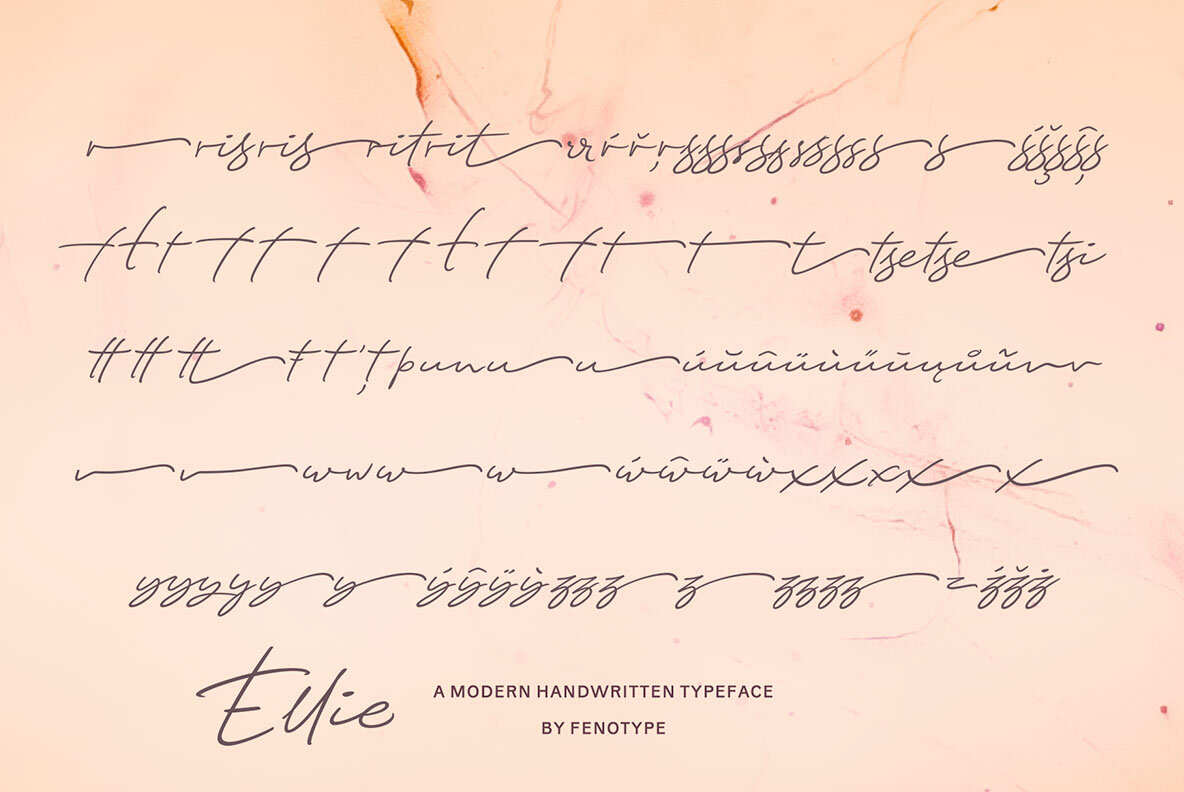 r risris ritrit rrŕřŗsssssssssss s śšşŝș
tttttttttttt t t tsetse tsi
tttttt ŧťțþunu u úŭûüùűūųůũvv
v v www w ẃŵẅẁxxxxx x
yyyyy y ýŷÿỳzzz z zzzz zźžż
Ellie
A MODERN HANDWRITTEN TYPEFACE
BY FENOTYPE